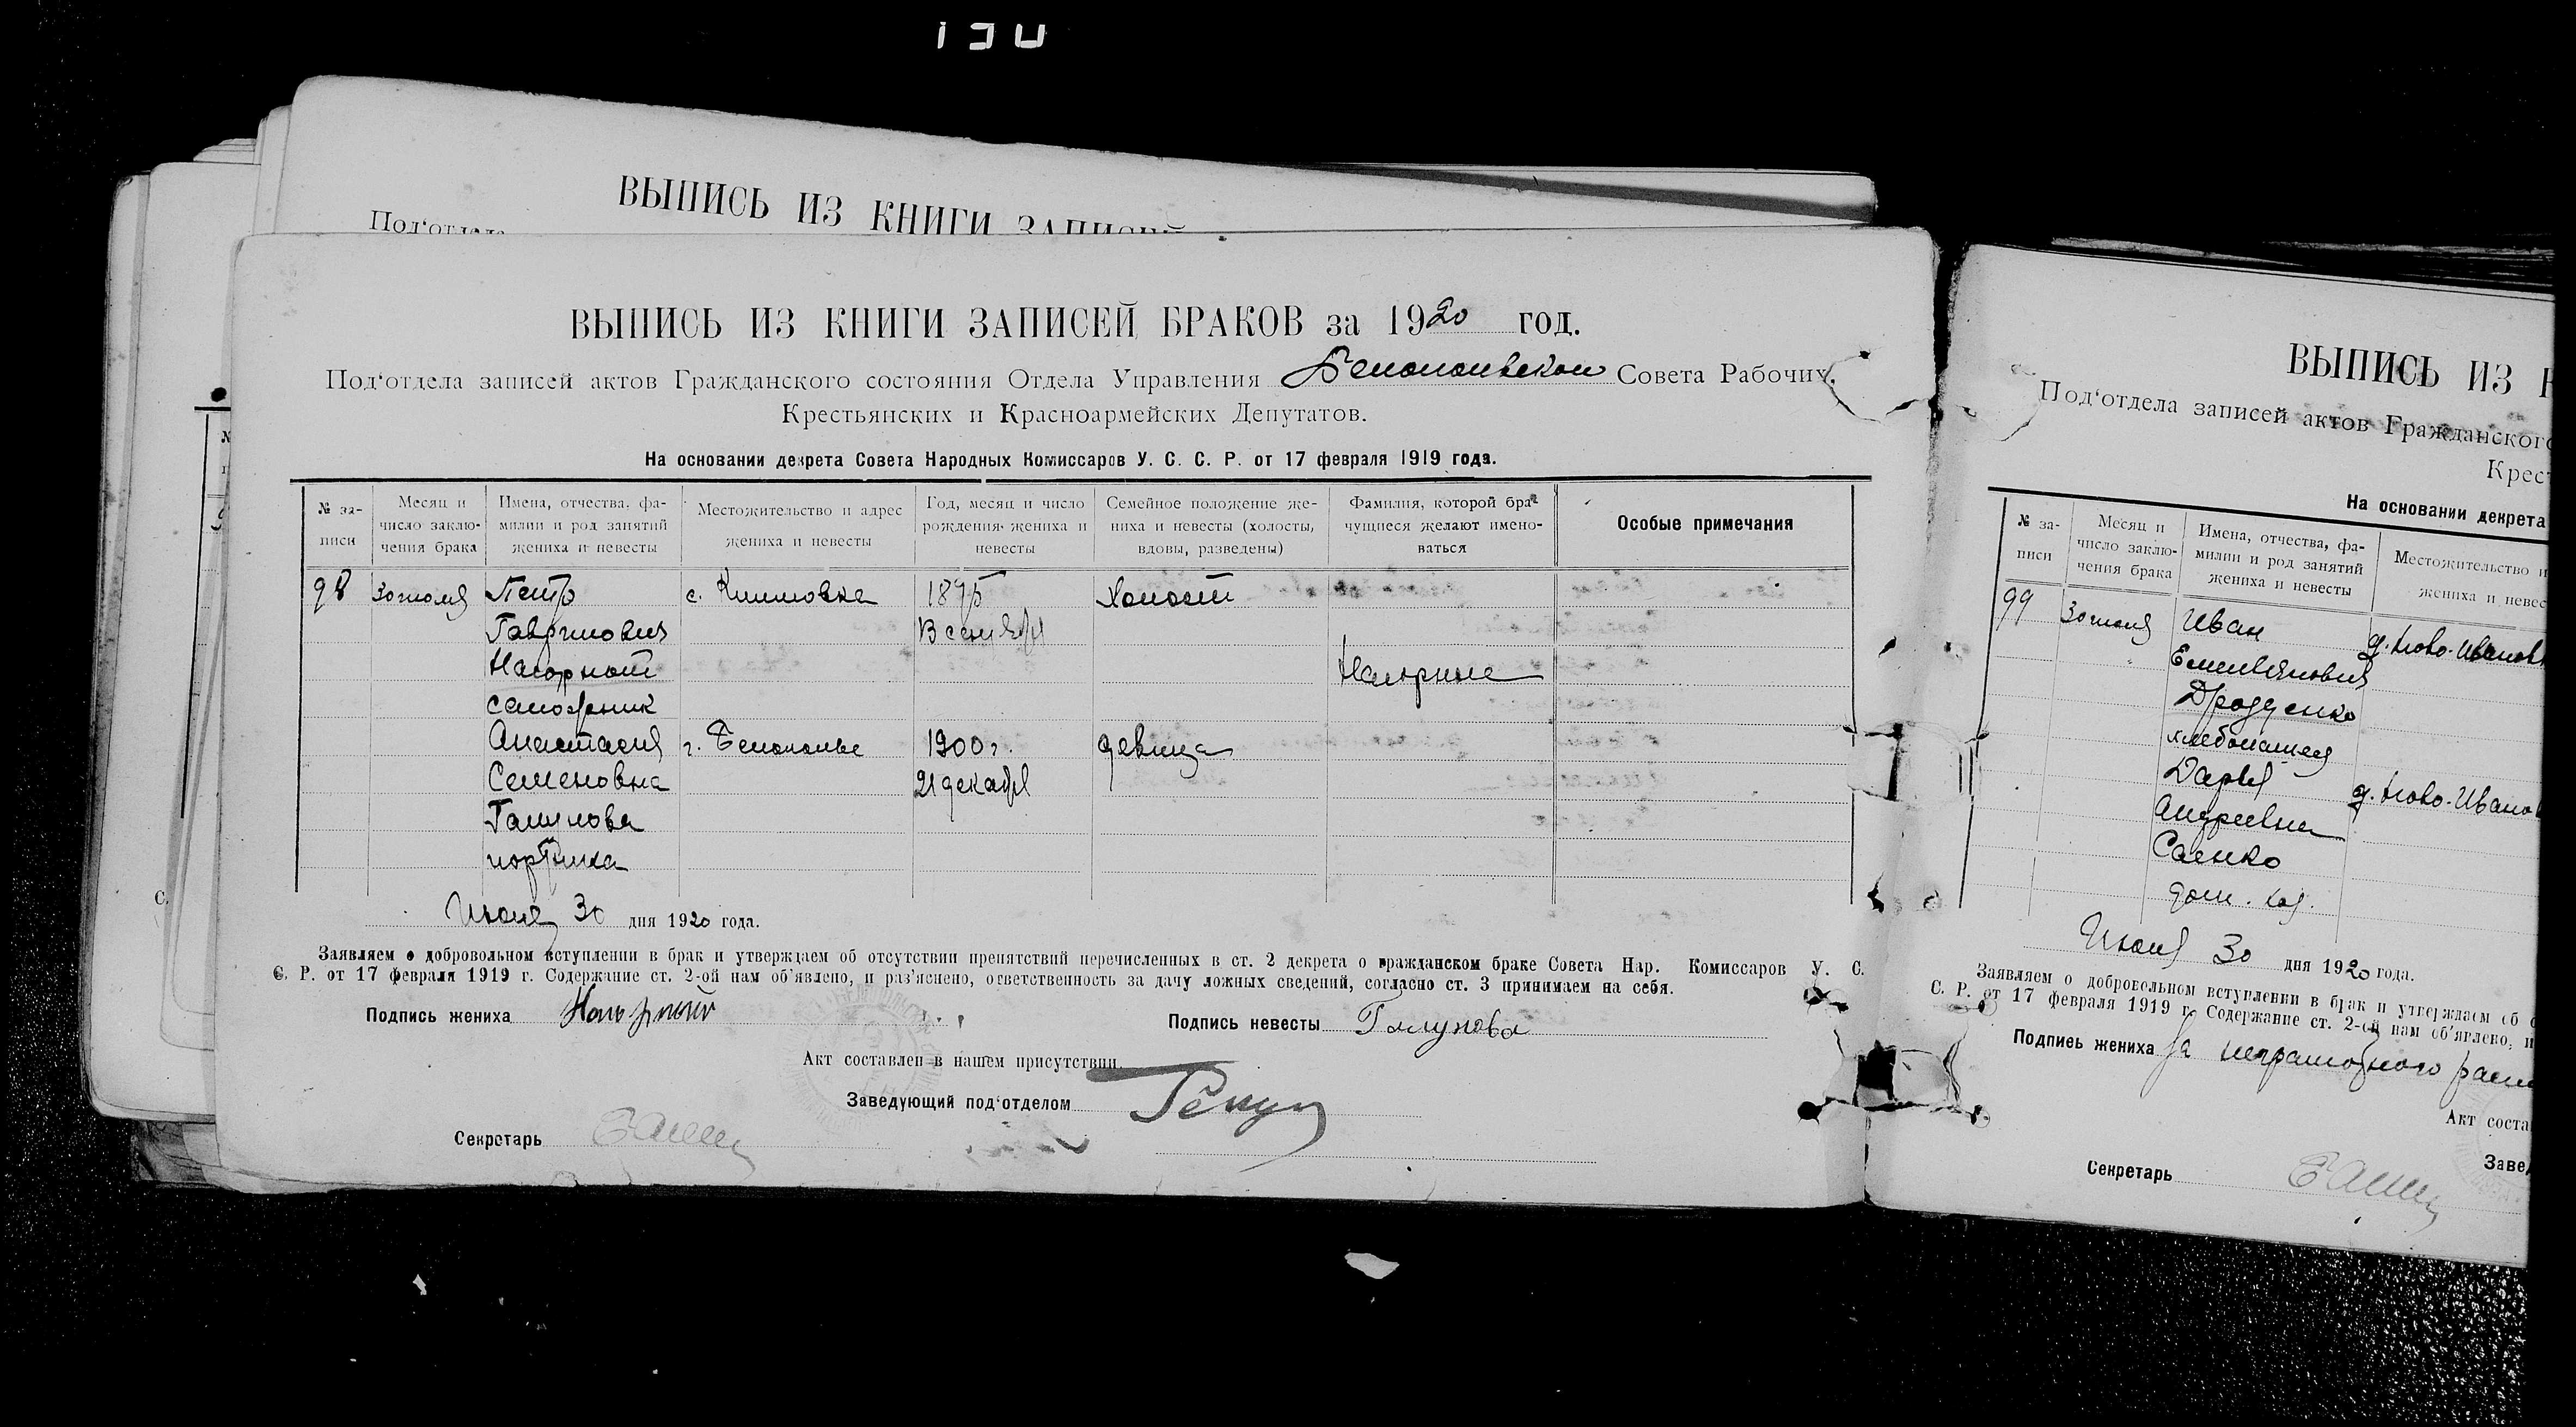 ВЫПИСЬ ИЗ КНИГИ ЗАПИСЕЙ
Под'отдела
ВЫПИСЬ ИЗ КНИГИ ЗАПИСЕЙ БРАКОВ за 1920 год.
Под'отдела записей актов Гражданского состояния Отдела Управления Белопольском Совета Рабочих,
Крестьянских и Красноармейских Депутатов.
На основании декрета Совета Народных Комиссаров У. С. С. Р. от 17 февраля 1919 года.
№ за-писи
Месяц и число заклю-чения брака
Имена, отчества, фа-милии и род занятий жениха и невесты
Местожительство и адрес жениха и невесты
Год, месяц и число рождения жениха и невесты
Семейное положение же-ниха и невесты (холосты, вдовы, разведены)
Фамилия, которой бра-чущиеся желают имено-ваться
Особые примечания
98 30 июля Петр с. Климовка 1895 Холост
Гаврилович В сентябр
Нагорный Нагорные
сапожник
Анастасия г. Белополье 1900 г. девица
Семеновна 21 декабря
Галунова
портниха
Июля 30 дня 1920 года.
Заявляем о добровольном вступлении в брак и утверждаем об отсутствии препятствий перечисленных в ст. 2 декрета о гражданском браке Совета Нар. Комиссаров У. С.
С. Р. от 17 февраля 1919 г. Содержание ст. 2-ой нам об'явлено, и раз'яснено, ответственность за дачу ложных сведений, согласно ст. 3 принимаем на себя.
Подпись жениха Нагорный Подпись невесты Галунова
Акт составлен в нашем присутствии.
Заведующий под'отделом
Секретарь
ВЫПИСЬ ИЗ К
Под'отдела записей актов Гражданского
Крест
На основании декрета
№ за-писи
Месяц и число заклю-чения брака
Имена, отчества, фа-милии и род занятий жениха и невесты
Местожительство и
жениха и невес
99 30 июля Иван д. Ново-Ивановк
Емельянович
Дрозденко
хлебопашец
Дарья д. Ново-Иванов
Андреевна
Саенко
дом. хоз.
Июля 30 дня 1920 года.
Заявляем о добровольном вступлении в брак и утверждаем об о
С. Р. от 17 февраля 1919 г. Содержание ст. 2-ой нам об'явлено, и
Подпись жениха За неграмотного распи
Акт соста
Заве
Секретарь